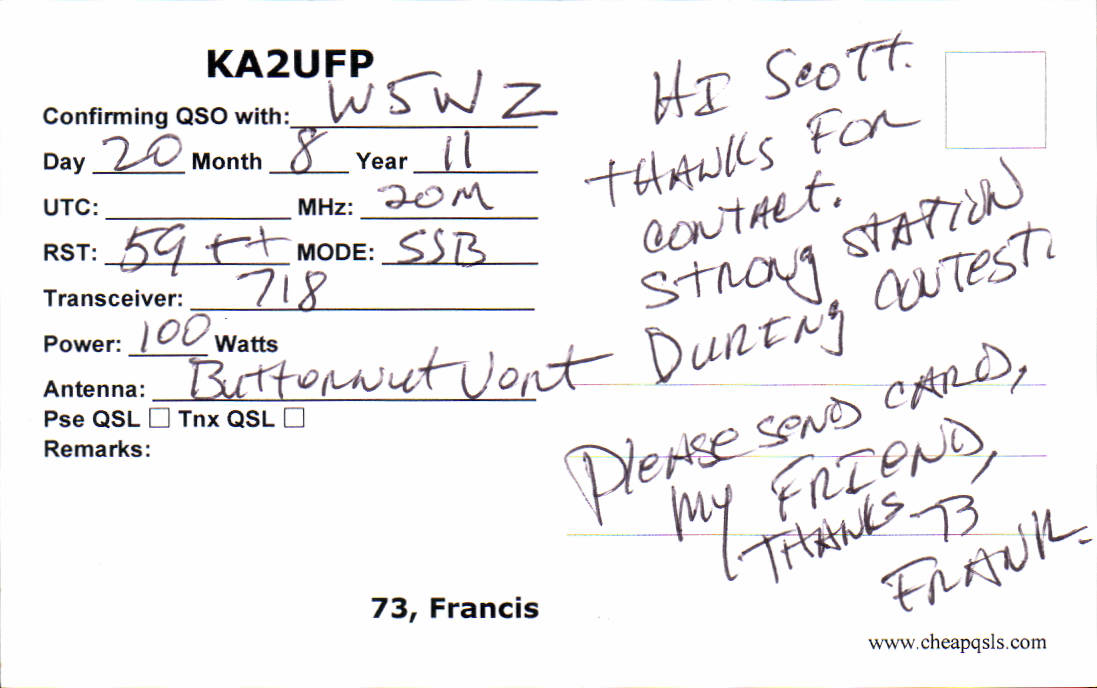 KA2UFP
Confirming QSO with: W5WZ
Day 20 Month 8 Year 11
UTC: MHz: 20M
RST: 59++ MODE: SSB
Transceiver: 718
Power: 100 Watts
Antenna: Butternut Vert
Pse QSL ☐ Tnx QSL ☐
Remarks:
73, Francis
HI SCOTT.
THANKS FOR
CONTACT.
STRONG STATION
DURING CONTEST.
PLEASE SEND CARD,
MY FRIEND,
THANKS 73
FRANK.
www.cheapqsls.com